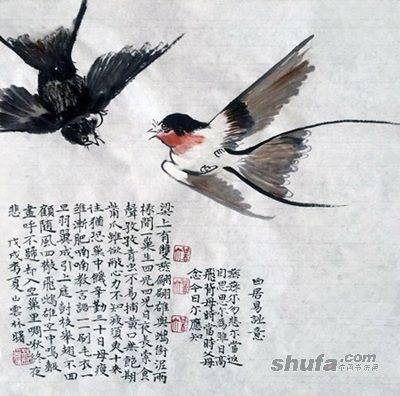 白居易詩意
燕燕爾勿悲爾當返
自思思爾為雛日高
飛背母時當時父母
念今日爾應知
梁上有雙燕翩翩雄與雌銜泥兩
椽間一巢生四兒四兒日夜長索食
聲孜孜青蟲不易捕黃口無飽期
觜爪雖欲敝心力不知疲須臾十來
往猶恐巢中饑辛勤三十日母瘦
雛漸肥喃喃教言語一一刷毛衣一
旦羽翼成引上庭樹枝舉翅不回
顧隨風四散飛雌雄空中鳴聲
盡呼不歸却入空巢裏啁啾終夜
悲 戊戌夏山雲林
shufa.com
中国书法网